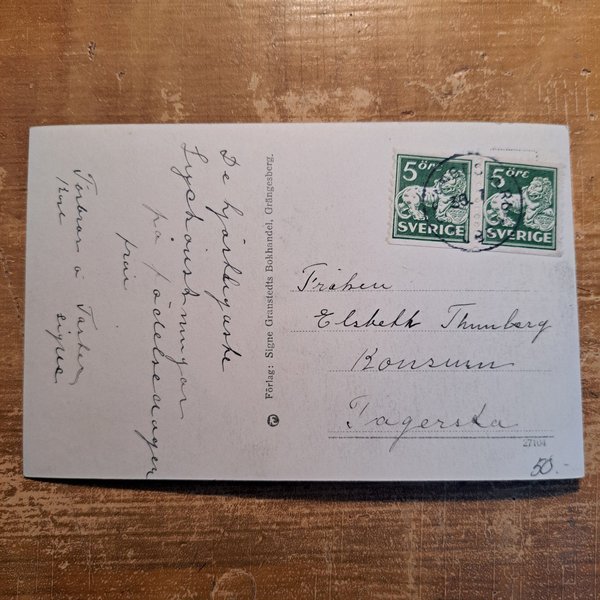 De hjärtligaste
Lyckönskningar
på födelsedagen
från
Torbran o
signe
Förlag: Signe Granstedts Bokhandel, Grängesberg.
5 ÖRE
SVERIGE
5 ÖRE
SVERIGE
Fröken
Elsbeth Thunberg
Konsum
Fagersta
27104
50.-